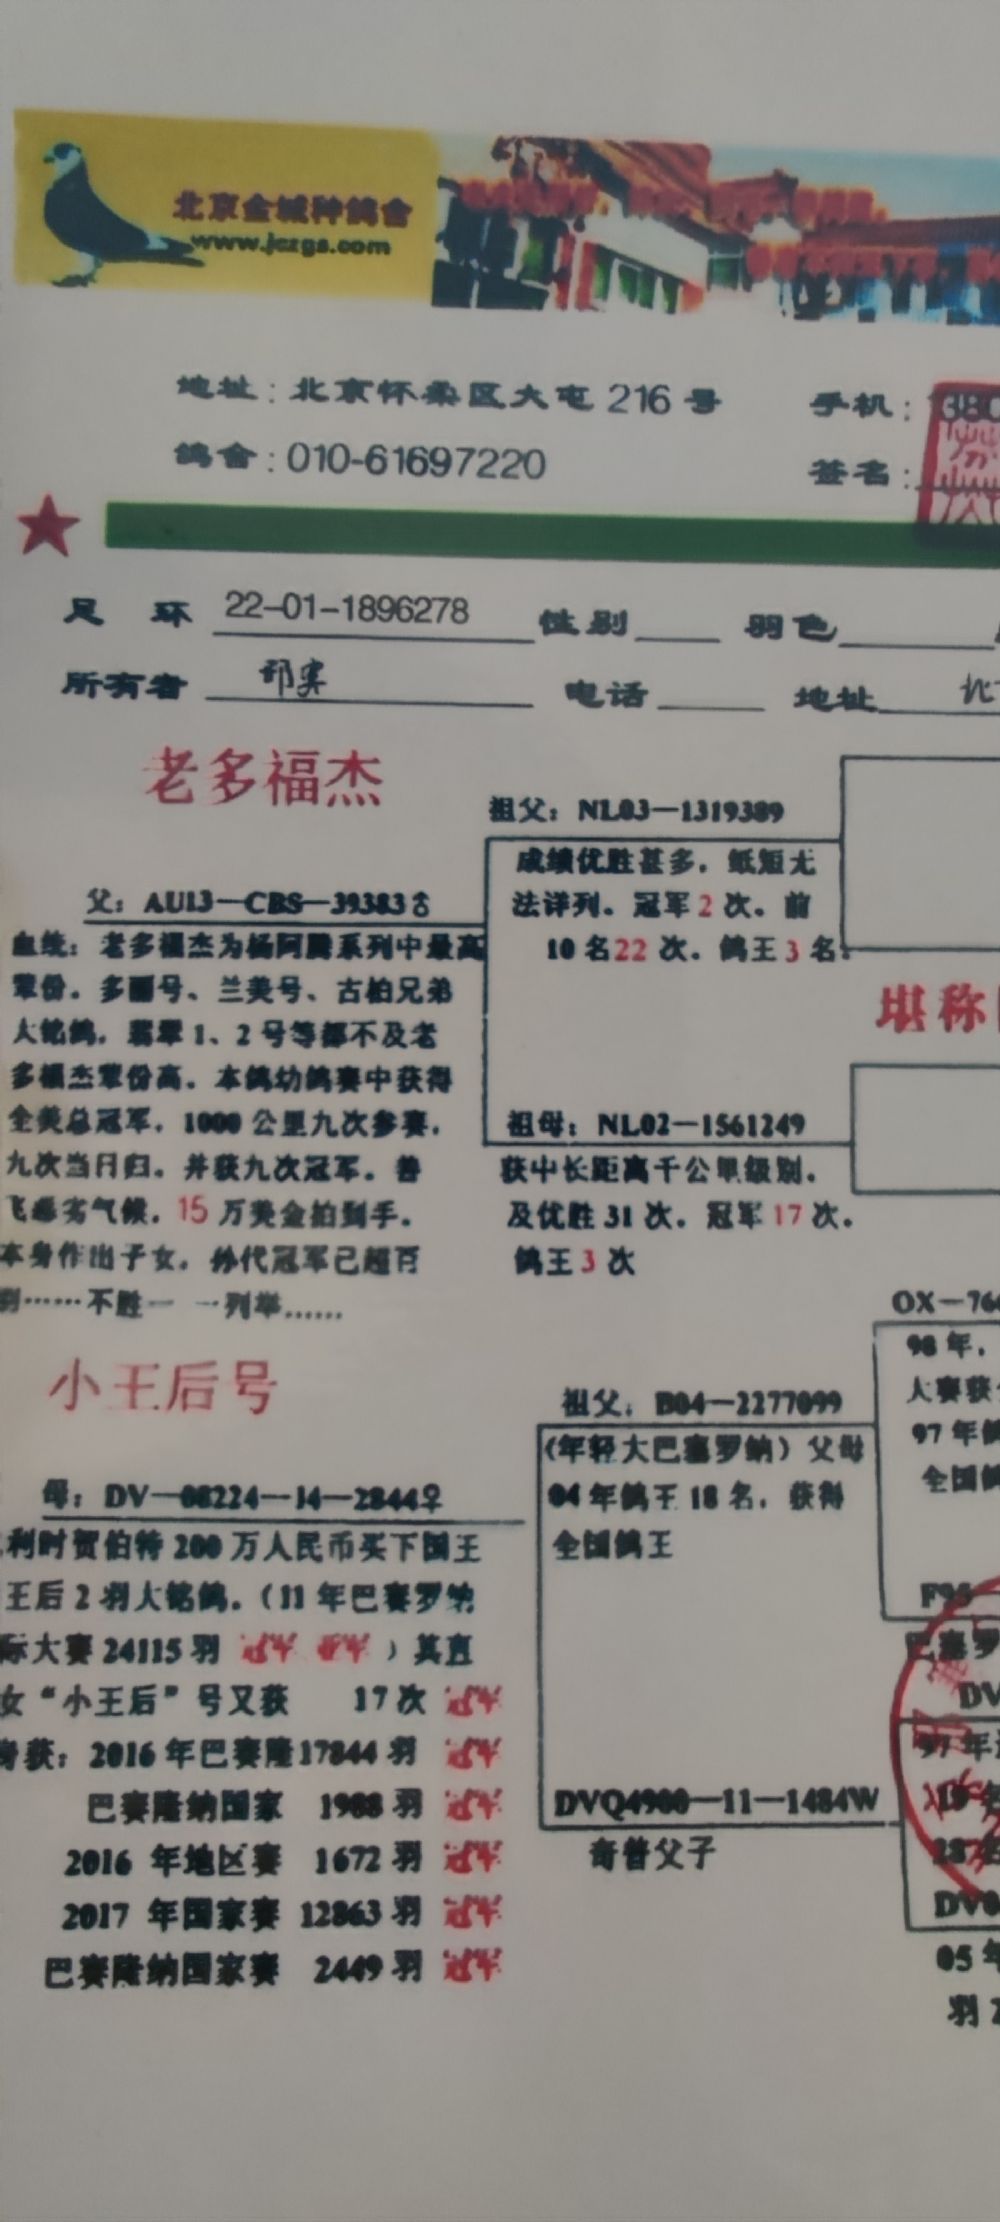 北京金城种鸽舍
www.jczgs.com
地址:北京怀柔区大屯216号
手机:1380
鸽舍:010-61697220
签名:
足 环 22-01-1896278 性别 羽色
所有者 电话 地址 北
老多福杰
祖父: NL03—1319389
成绩优胜甚多. 纸短无
法详列. 冠军2次. 前
10名22次. 鸽王3名.
父: AU13—CBS—39383♂
血统: 老多福杰为杨阿腾系列中最高
辈份. 多丽号、兰美号、古柏兄弟
大铭鸽. 翡翠1、2号等都不及老
多福杰辈份高. 本鸽幼鸽赛中获得
全美总冠军. 1000公里九次参赛.
九次当日归. 并获九次冠军. 善
飞恶劣气候. 15万美金拍到手.
本身作出子女. 孙代冠军已超百
羽……不胜一 一列举……
堪称
祖母: NL02—1561249
获中长距离千公里级别.
及优胜31次. 冠军17次.
鸽王3次
小王后号
母: DV—08224—14—2844♀
利时贺伯特200万人民币买下国王
王后2羽大铭鸽. (11年巴赛罗纳
际大赛24115羽 冠军 亚军 ) 其直
女“小王后”号又获 17次 冠军
身获: 2016年巴赛隆17844羽 冠军
巴赛隆纳国家 1988羽 冠军
2016 年地区赛 1672羽 冠军
2017 年国家赛 12863羽 冠军
巴赛隆纳国家赛 2449羽 冠军
祖父: B04—2277099
(年轻大巴塞罗纳) 父母
04年鸽王18名. 获得
全国鸽王
DVQ4900—11—1484W
奇普父子
OX—766
98年.
大赛获
97年鸽
全国鸽
F95
巴塞罗
DV
97年
19名
DV0
05年
羽2